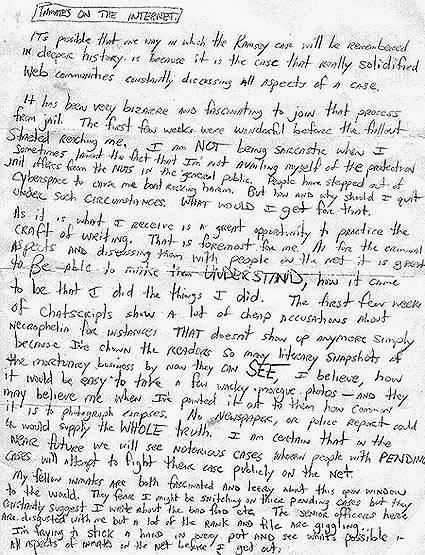 INMATES ON THE INTERNET.
ITS possible that one way in which the Ramsey case will be remembered
in deeper history is because it is the case that really solidified
Web communities constantly discussing All aspects of a case.
IT has been very bizarre and fascinating to join that process
from jail. The first few weeks were wonderful before the fallout
started reaching me. I am NOT being sarcastic when I
sometimes lament the fact that I'm not availing myself of the protection
jail offers from the NUTS in the general public. People have stepped out of
Cyberspace to cause me harm. But how and why should I quit
under such circumstances. WHAT would I get for that.
As it is what I receive is a great opportunity to practice the
CRAFT of writing. That is foremost for me. As for the criminal
Aspects AND discussing them with people on the net it is great
to Be Able to make them UNDERSTAND, how it came
to be that I did the things I did. The first few weeks
of Chatscripts show A lot of cheap accusations About
Necrophelia for instance. THAT doesn't show up anymore simply
because I've shown the readers so many literary snapshots of
the mortuary business by now they can SEE, I believe, how
it would be easy to take a few wacky morgue photos - and they
may believe me when I've pointed it out to them how common
it is to photograph corpses. No newspaper, or police report could
or would supply the WHOLE truth. I am certain that in the
near future we will see notorious cases wherein people with PENDING
cases will attempt to fight there case publicly on the Net
My fellow inmates are both fascinated and leery about this open window
to the world. They fear I might be snitching on there pending cases but they
constantly suggest I write about the bad food etc. The senior officers here
are disgusted with me but a lot of the rank and file are giggling.
I'm trying to stick a hand in every pot and see whats possible in
all aspects of inmates on the net before I get out.